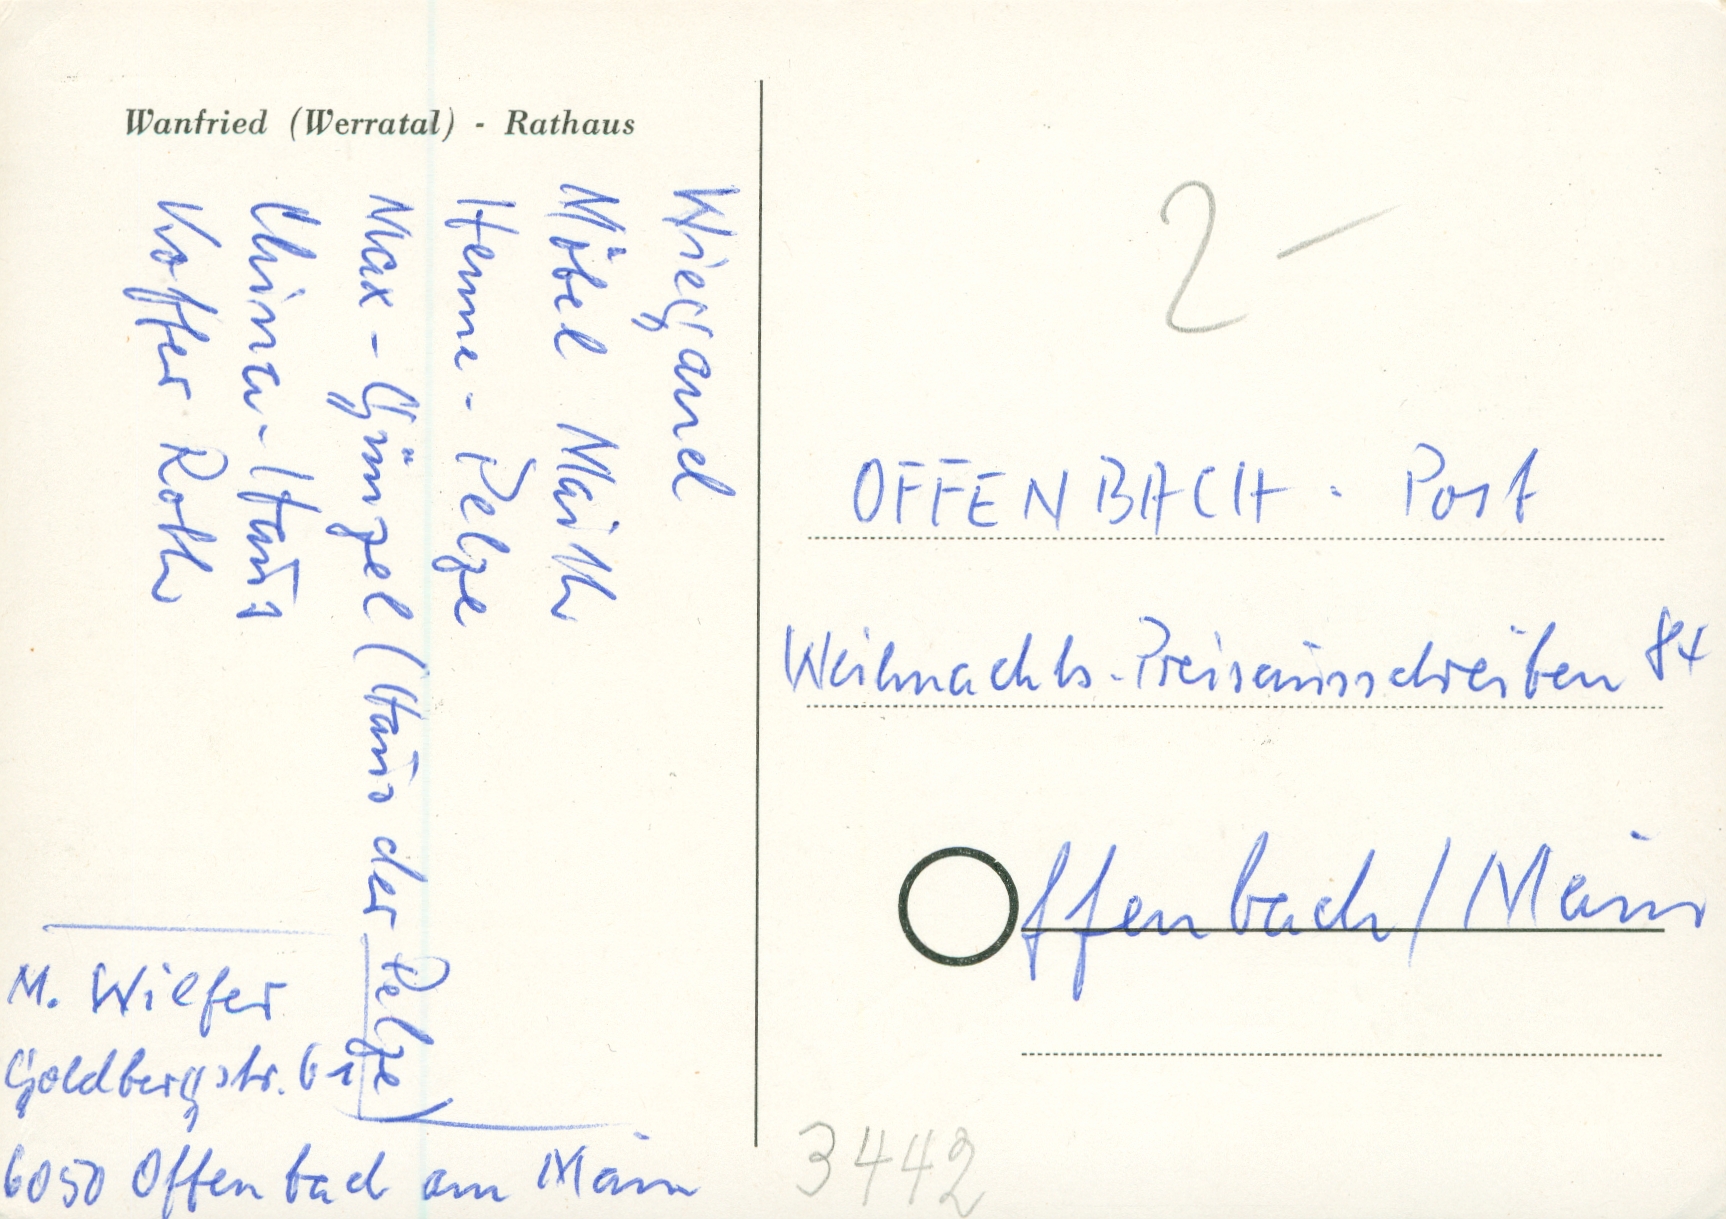 Wanfried (Werratal) - Rathaus
Wiegand
Möbel Maith
Henne-Pelze
Max-Günzel (Haus der Pelze)
China-Haus
Koffer Roth
M. Wilfer
Goldbergstr. 61
6050 Offenbach am Main
2-
OFFENBACH-Post
Weihnachts-Preisausschreiben 84
Offenbach/Main
3442